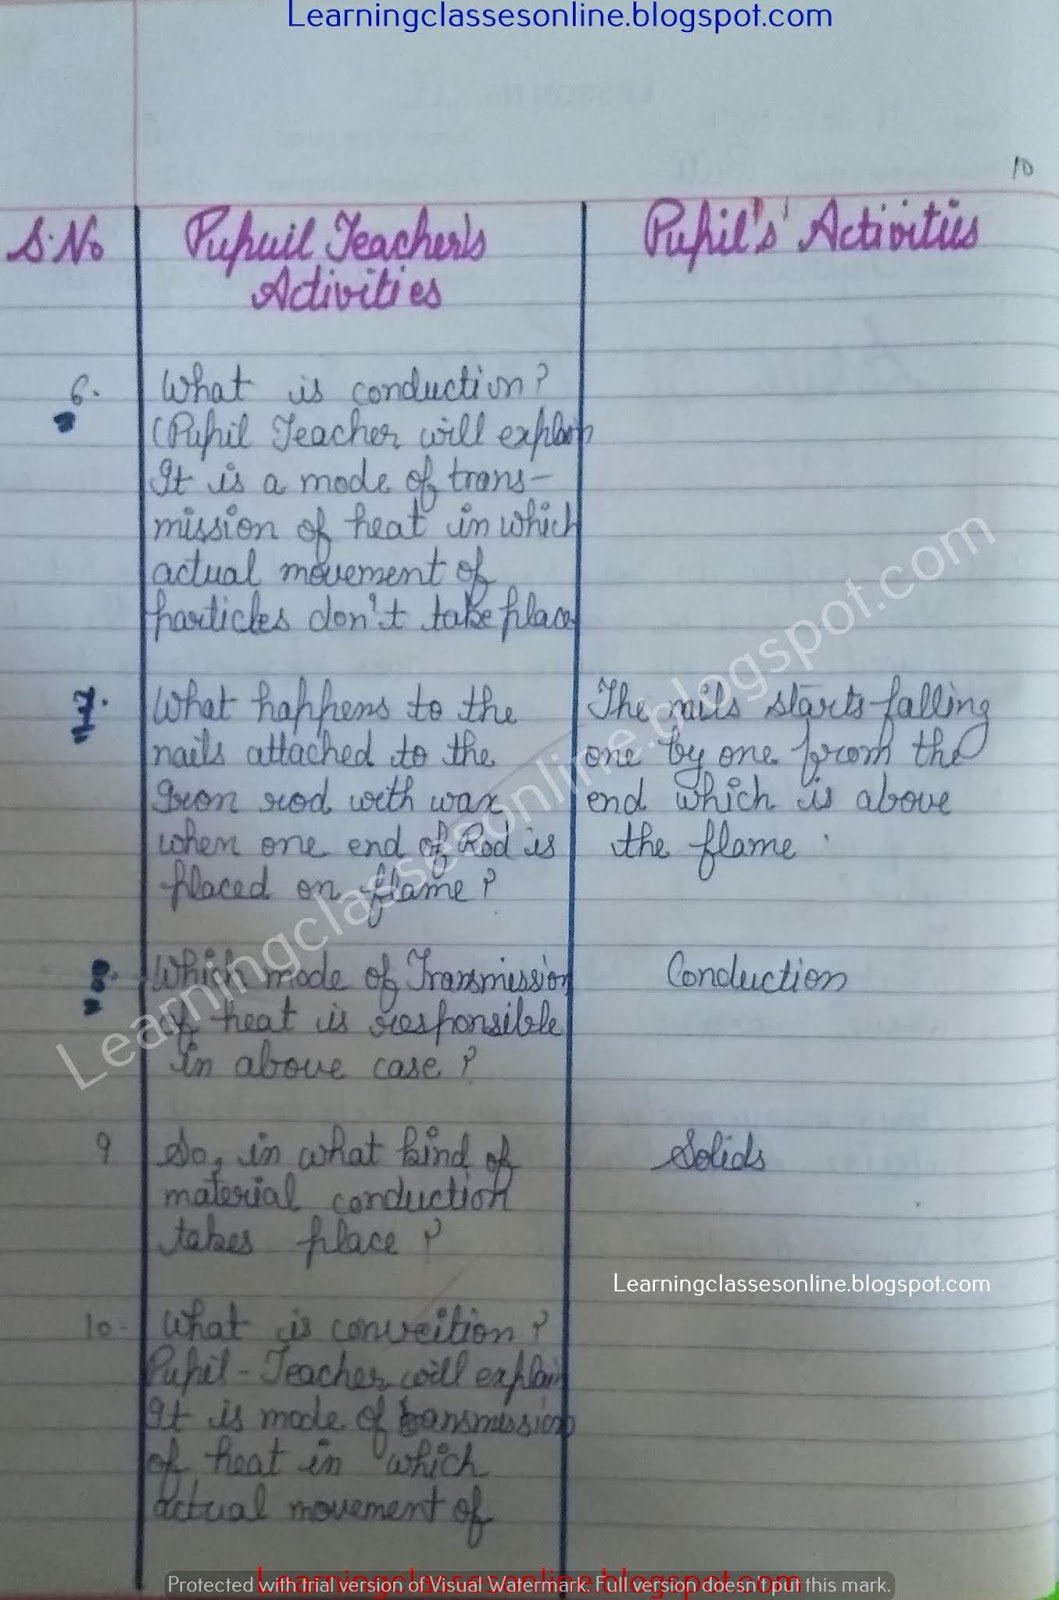 Learningclassesonline.blogspot.com
10
S.No Pupuil Teacher's Pupil's Activities
Activities
6. What is conduction?
(Pupil Teacher will explain
It is a mode of trans-
mission of heat in which
actual movement of
particles don't take place
7. What happens to the
nails attached to the
Iron rod with wax
when one end of Rod is
placed on flame?
The nails starts falling
one by one from the
end which is above
the flame.
8. Which mode of Transmission
of heat is responsible
in above case?
Conduction
9 So, in what kind of
material conduction
takes place?
Solids
Learningclassesonline.blogspot.com
Learningclassesonline.blogspot.com
10. What is conveition?
Pupil-Teacher will explain
It is mode of transmission
of heat in which
actual movement of
Learningclassesonline.blogspot.com
Protected with trial version of Visual Watermark. Full version doesn't put this mark.